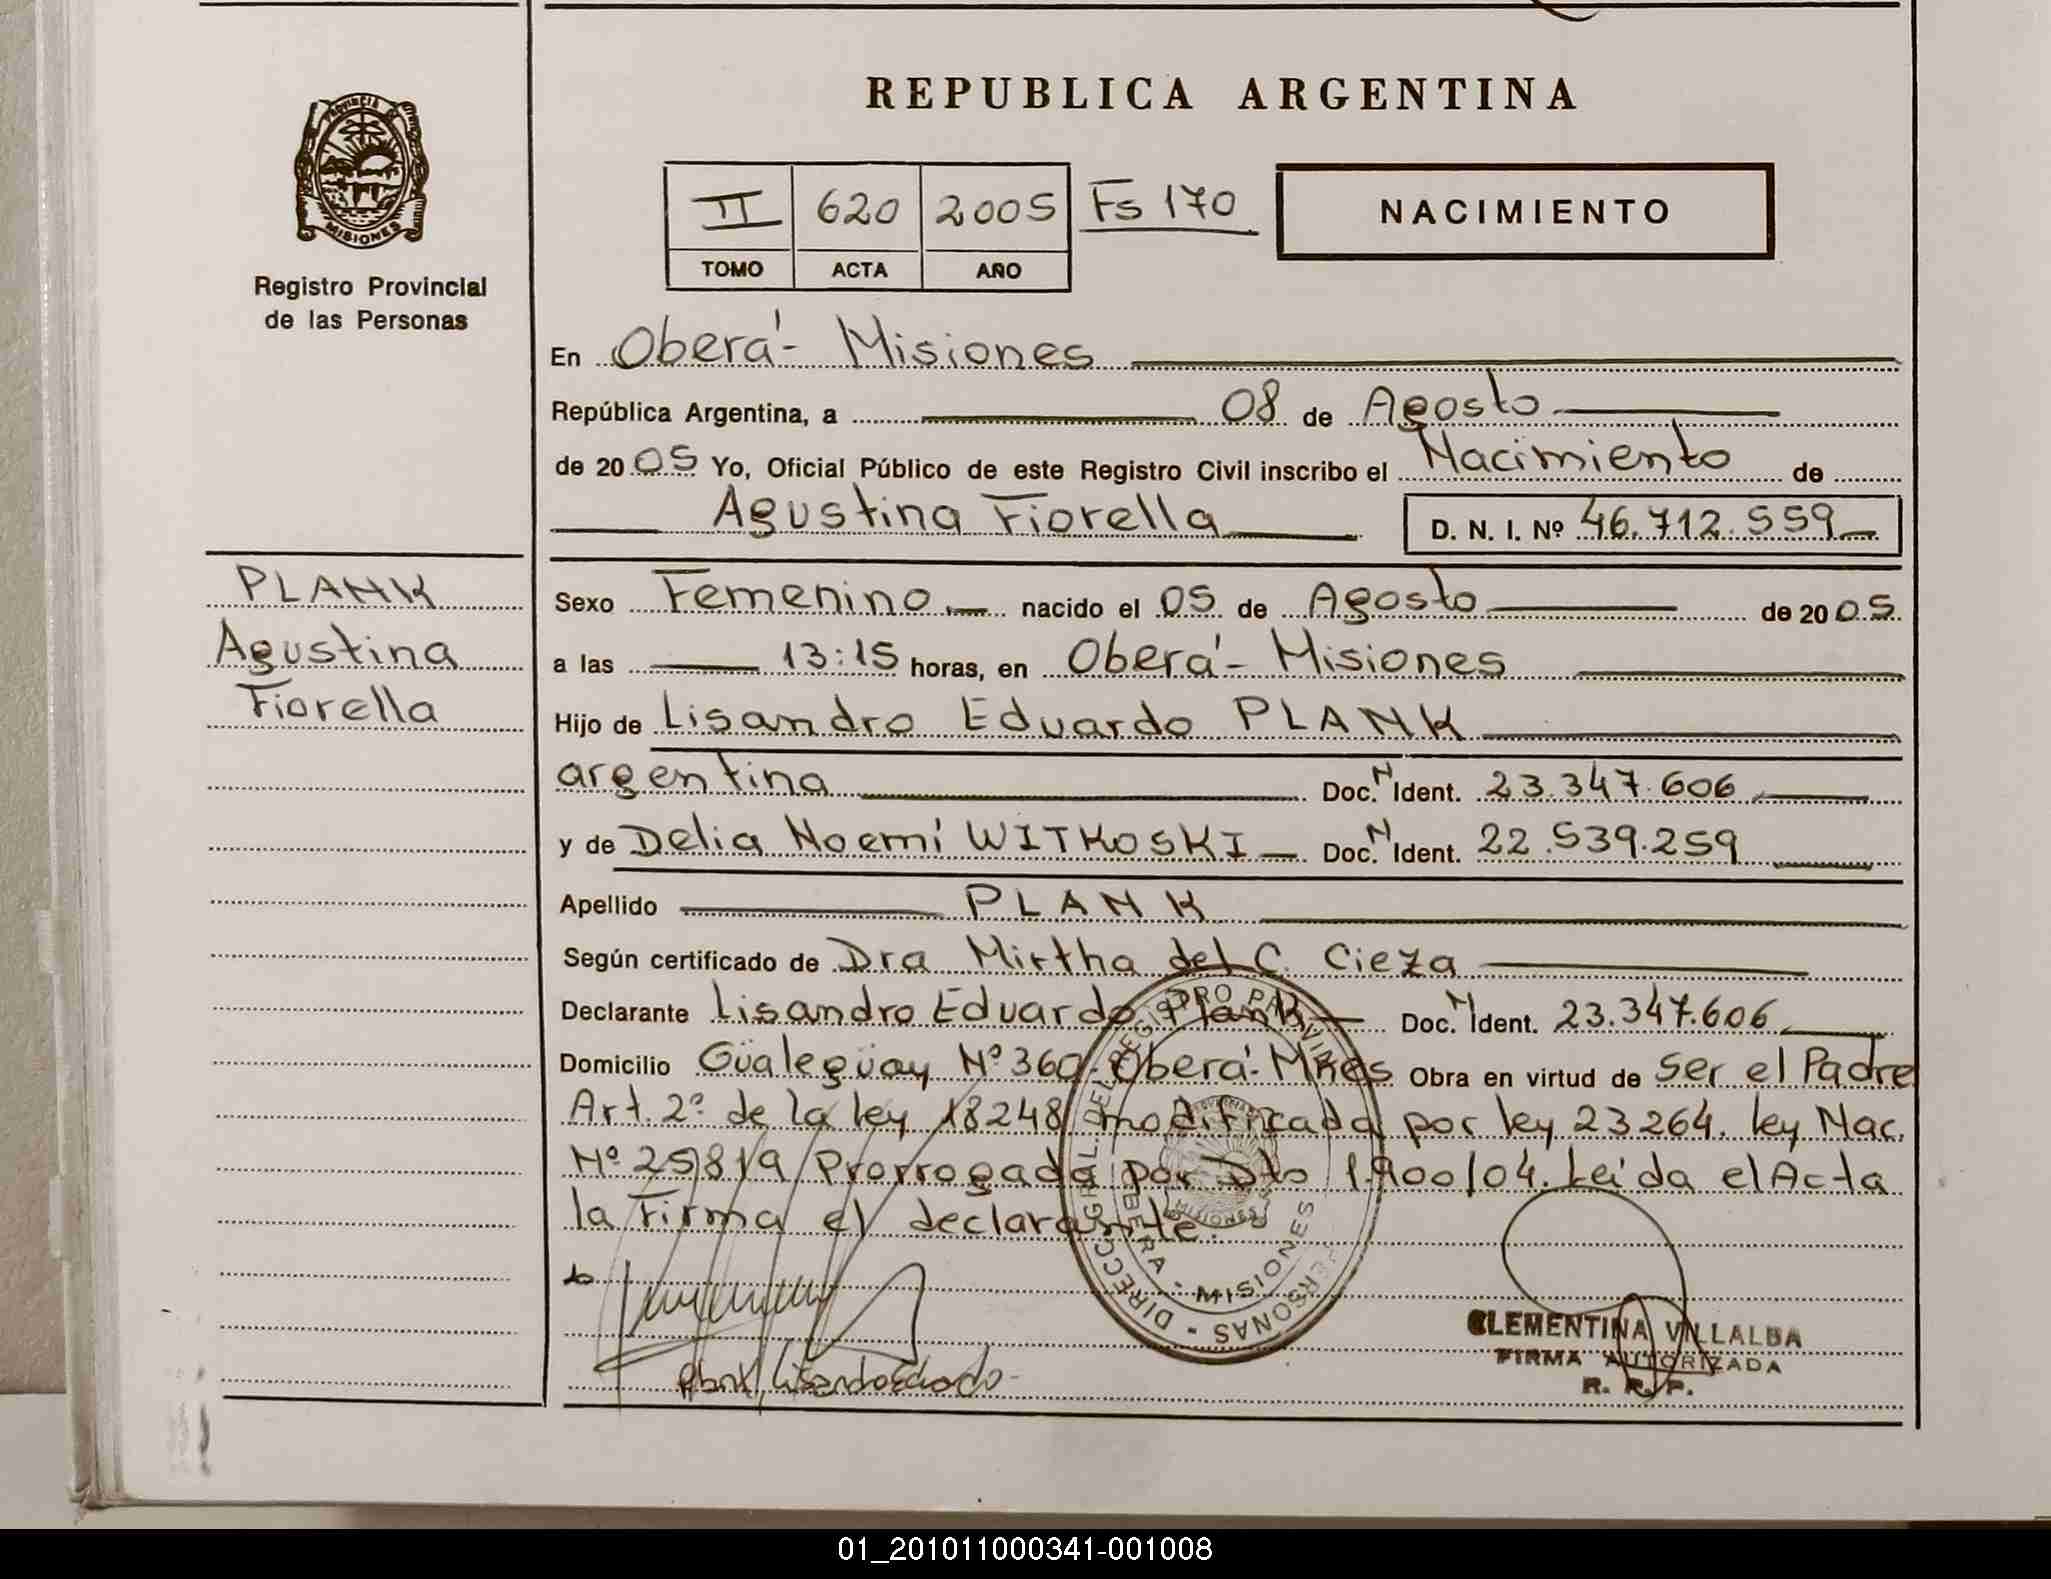 REPUBLICA ARGENTINA
PROVINCIA DE
MISIONES
Registro Provincial
de las Personas
II 620 2005 Fs 170
TOMO ACTA AÑO
NACIMIENTO
En Oberá - Misiones
República Argentina, a 08 de Agosto
de 2005 Yo, Oficial Público de este Registro Civil inscribo el Nacimiento de
Agustina Fiorella D. N. I. Nº 46.712.559
PLANK
Agustina
Fiorella
Sexo Femenino nacido el 05 de Agosto de 2005
a las 13:15 horas, en Oberá - Misiones
Hijo de Lisandro Eduardo PLANK
argentina Doc. N Ident. 23.347.606
y de Delia Noemí WITKOSKI Doc. N Ident. 22.539.259
Apellido PLANK
Según certificado de Dra Mirtha del C. Cieza
Declarante Lisandro Eduardo Plank Doc. N Ident. 23.347.606
Domicilio Güalegüay Nº 360 - Oberá - Mnes Obra en virtud de Ser el Padre
Art. 2º de la ley 18248 modificada por ley 23264. ley Nac.
Nº 25819 Prorrogada por Dto 1.900/04. Leída el Acta
la Firma el declarante.
DIRECC. GRAL. DEL REGISTRO PROVIN PERSONAS
OBERA - MISIONES
MISIONES
Plank Lisandro Eduardo
CLEMENTINA VILLALBA
FIRMA AUTORIZADA
R. P. P.
01_201011000341-001008